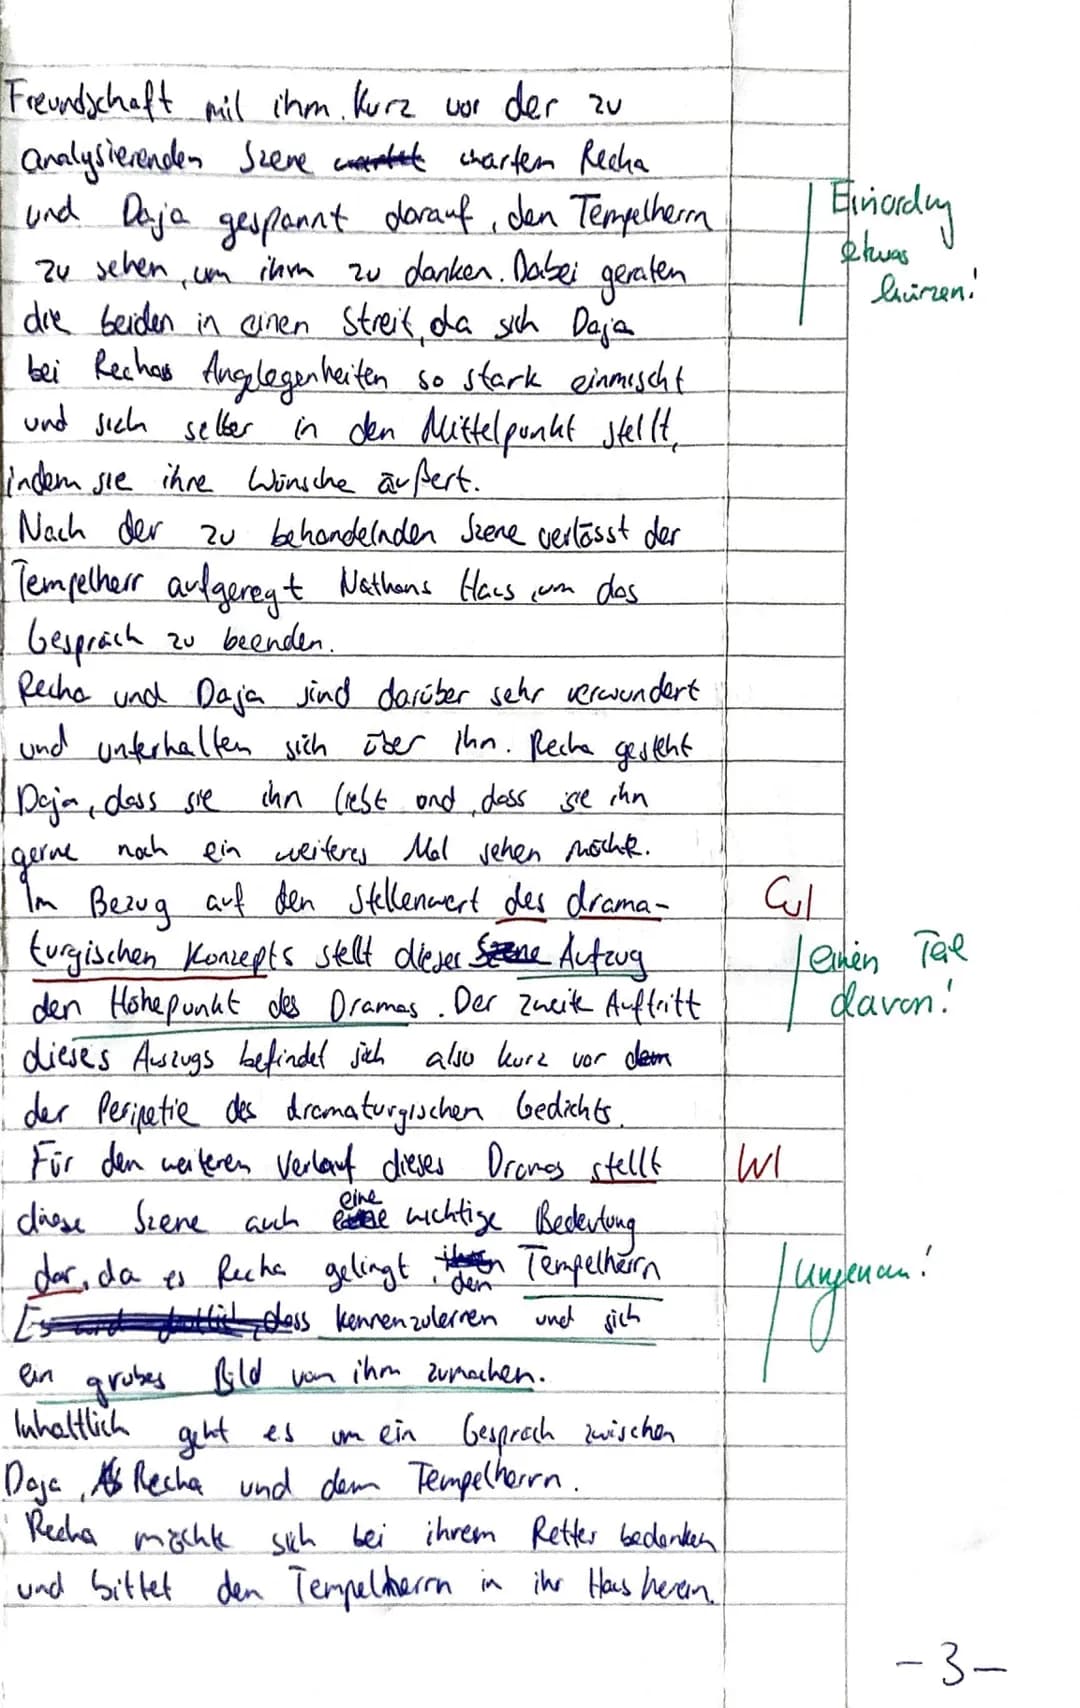 Freundschaft mit ihm. Kurz vor der zu
analysierenden Szene wartet warten Recha
und Daja gespannt darauf, den Tempelherrn
zu sehen, um ihm zu danken. Dabei geraten
die beiden in einen Streit, da sich Daja
bei Rechas Anglegenheiten so stark einmischt
und sich selber in den Mittelpunkt stellt,
indem sie ihre Wünsche äußert.
Nach der zu behandelnden Szene verlässt der
Tempelherr aufgeregt Nathans Haus, um das
Gespräch zu beenden.
Recha und Daja sind darüber sehr verwundert
und unterhalten sich über ihn. Recha gesteht
Daja, dass sie ihn liebt und, dass sie ihn
gerne noch ein weiteres Mal sehen möchte.
Im Bezug auf den Stellenwert des drama-
turgischen Konzepts stellt dieser Szene Aufzug
den Höhepunkt des Dramas. Der zweite Auftritt
dieses Auszugs befindet sich also kurz vor dem
der Peripetie des dramaturgischen Gedichts.
Für den weiteren Verlauf dieses Dramas stellt
diese Szene auch eine wichtige Bedeutung
dar, da es Recha gelingt, den Tempelherrn
dass kennenzulernen und sich
ein grobes Bild von ihm zumachen.
Inhaltlich geht es um ein Gespräch zwischen
Daja, Recha und dem Tempelherrn.
Recha möchte sich bei ihrem Retter bedanken
und bittet den Tempelherrn in ihr Haus herein.
Einordng
etwas
kürzen!
einen Teil
davon!
W
Ungenau!
-3-